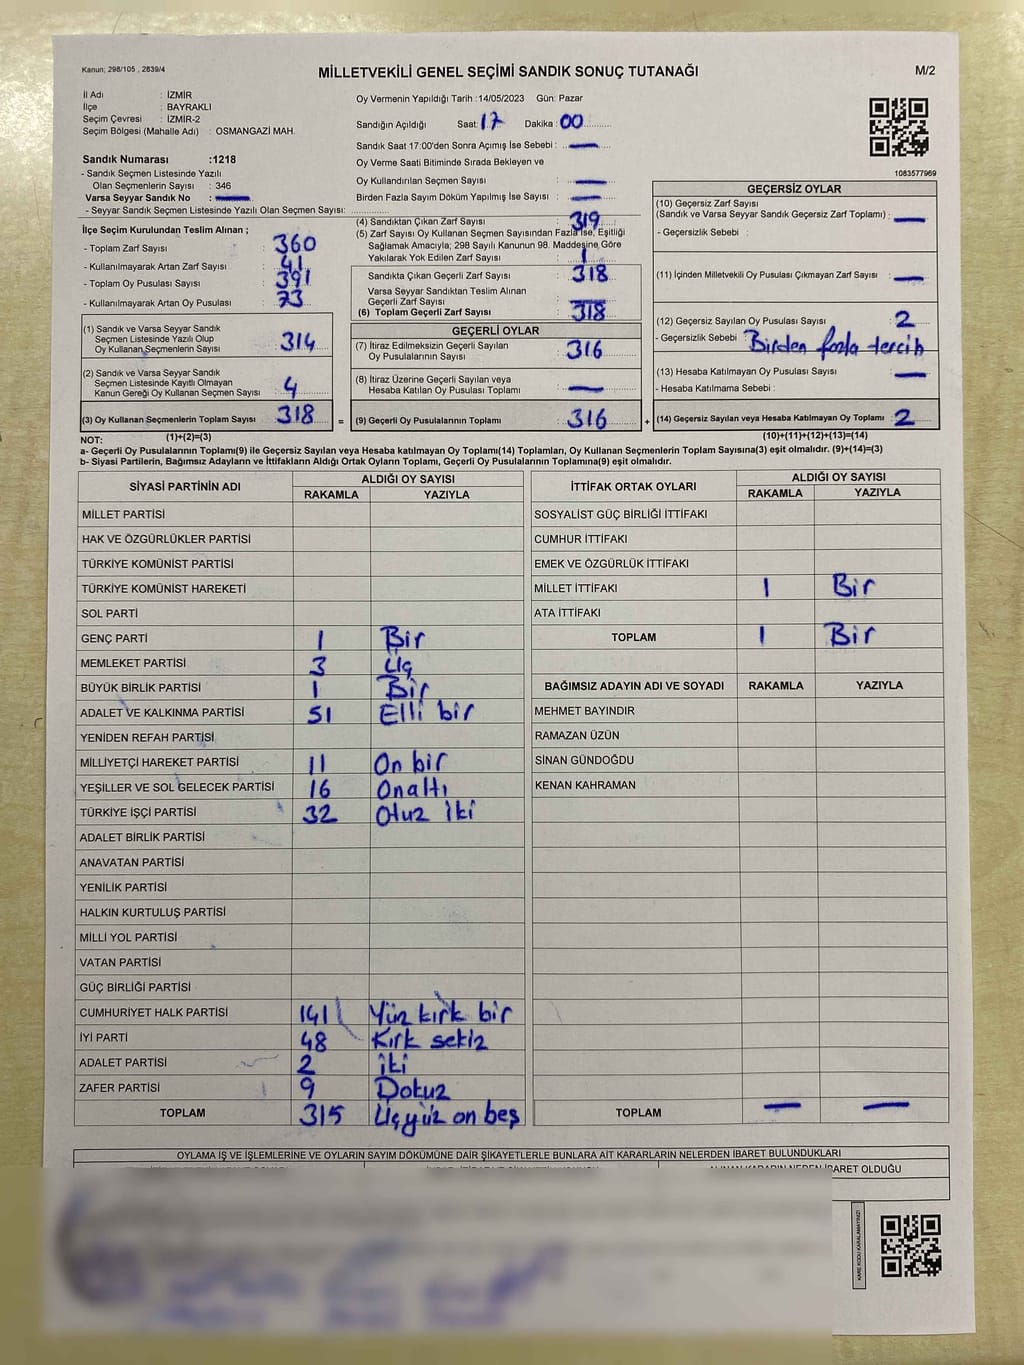 Kanun; 298/105 , 2839/4
MİLLETVEKİLİ GENEL SEÇİMİ SANDIK SONUÇ TUTANAĞI
M/2
İl Adı : İZMİR
İlçe : BAYRAKLI
Seçim Çevresi : İZMİR-2
Seçim Bölgesi (Mahalle Adı) : OSMANGAZİ MAH.
Sandık Numarası :1218
- Sandık Seçmen Listesinde Yazılı
Olan Seçmenlerin Sayısı : 346
Varsa Seyyar Sandık No : —
- Seyyar Sandık Seçmen Listesinde Yazılı Olan Seçmen Sayısı:
Oy Vermenin Yapıldığı Tarih :14/05/2023 Gün: Pazar
Sandığın Açıldığı Saat: 17 Dakika : 00
Sandık Saat 17:00'den Sonra Açımış İse Sebebi : —
Oy Verme Saati Bitiminde Sırada Bekleyen ve
Oy Kullandırılan Seçmen Sayısı : —
Birden Fazla Sayım Döküm Yapılmış İse Sayısı : —
1083577969
İlçe Seçim Kurulundan Teslim Alınan ;
- Toplam Zarf Sayısı : 360
- Kullanılmayarak Artan Zarf Sayısı : 41
- Toplam Oy Pusulası Sayısı : 391
- Kullanılmayarak Artan Oy Pusulası : 73
(1) Sandık ve Varsa Seyyar Sandık
Seçmen Listesinde Yazılı Olup
Oy Kullanan Seçmenlerin Sayısı : 314
(2) Sandık ve Varsa Seyyar Sandık
Seçmen Listesinde Kayıtlı Olmayan
Kanun Gereği Oy Kullanan Seçmen Sayısı : 4
(3) Oy Kullanan Seçmenlerin Toplam Sayısı : 318
(1)+(2)=(3)
(4) Sandıktan Çıkan Zarf Sayısı : 319
(5) Zarf Sayısı Oy Kullanan Seçmen Sayısından Fazla İse, Eşitliği
Sağlamak Amacıyla; 298 Sayılı Kanunun 98. Maddesine Göre
Yakılarak Yok Edilen Zarf Sayısı : 1
Sandıkta Çıkan Geçerli Zarf Sayısı : 318
Varsa Seyyar Sandıktan Teslim Alınan
Geçerli Zarf Sayısı : —
(6) Toplam Geçerli Zarf Sayısı : 318
GEÇERLİ OYLAR
(7) İtiraz Edilmeksizin Geçerli Sayılan
Oy Pusulalarının Sayısı : 316
(8) İtiraz Üzerine Geçerli Sayılan veya
Hesaba Katılan Oy Pusulaları Toplamı : —
= (9) Geçerli Oy Pusulalarının Toplamı : 316 +
GEÇERSİZ OYLAR
(10) Geçersiz Zarf Sayısı
(Sandık ve Varsa Seyyar Sandık Geçersiz Zarf Toplamı) : —
- Geçersizlik Sebebi :
(11) İçinden Milletvekili Oy Pusulası Çıkmayan Zarf Sayısı : —
(12) Geçersiz Sayılan Oy Pusulası Sayısı : 2
- Geçersizlik Sebebi : Birden fazla tercih
(13) Hesaba Katılmayan Oy Pusulası Sayısı : —
- Hesaba Katılmama Sebebi :
(14) Geçersiz Sayılan veya Hesaba Katılmayan Oy Toplamı : 2
(10)+(11)+(12)+(13)=(14)
NOT:
a- Geçerli Oy Pusulalarının Toplamı(9) ile Geçersiz Sayılan veya Hesaba katılmayan Oy Toplamı(14) Toplamları, Oy Kullanan Seçmenlerin Toplam Sayısına(3) eşit olmalıdır. (9)+(14)=(3)
b- Siyasi Partilerin, Bağımsız Adayların ve İttifakların Aldığı Ortak Oyların Toplamı, Geçerli Oy Pusulalarının Toplamına(9) eşit olmalıdır.
SİYASİ PARTİNİN ADI
ALDIĞI OY SAYISI
RAKAMLA YAZIYLA
MİLLET PARTİSİ
HAK VE ÖZGÜRLÜKLER PARTİSİ
TÜRKİYE KOMÜNİST PARTİSİ
TÜRKİYE KOMÜNİST HAREKETİ
SOL PARTİ
GENÇ PARTİ 1 Bir
MEMLEKET PARTİSİ 3 Üç
BÜYÜK BİRLİK PARTİSİ 1 Bir
ADALET VE KALKINMA PARTİSİ 51 Elli bir
YENİDEN REFAH PARTİSİ
MİLLİYETÇİ HAREKET PARTİSİ 11 On bir
YEŞİLLER VE SOL GELECEK PARTİSİ 16 Onaltı
TÜRKİYE İŞÇİ PARTİSİ 32 Otuz iki
ADALET BİRLİK PARTİSİ
ANAVATAN PARTİSİ
YENİLİK PARTİSİ
HALKIN KURTULUŞ PARTİSİ
MİLLİ YOL PARTİSİ
VATAN PARTİSİ
GÜÇ BİRLİĞİ PARTİSİ
CUMHURİYET HALK PARTİSİ 141 Yüz kırk bir
İYİ PARTİ 48 Kırk sekiz
ADALET PARTİSİ 2 iki
ZAFER PARTİSİ 9 Dokuz
TOPLAM 315 Üçyüz on beş
İTTİFAK ORTAK OYLARI
ALDIĞI OY SAYISI
RAKAMLA YAZIYLA
SOSYALİST GÜÇ BİRLİĞİ İTTİFAKI
CUMHUR İTTİFAKI
EMEK VE ÖZGÜRLÜK İTTİFAKI
MİLLET İTTİFAKI 1 Bir
ATA İTTİFAKI
TOPLAM 1 Bir
BAĞIMSIZ ADAYIN ADI VE SOYADI RAKAMLA YAZIYLA
MEHMET BAYINDIR
RAMAZAN ÜZÜN
SİNAN GÜNDOĞDU
KENAN KAHRAMAN
TOPLAM — —
OYLAMA İŞ VE İŞLEMLERİNE VE OYLARIN SAYIM DÖKÜMÜNE DAİR ŞİKAYETLERLE BUNLARA AİT KARARLARIN NELERDEN İBARET BULUNDUKLARI
ALINAN KARARIN NEDEN İBARET OLDUĞU
KARE KODU KARALAMAYINIZ!